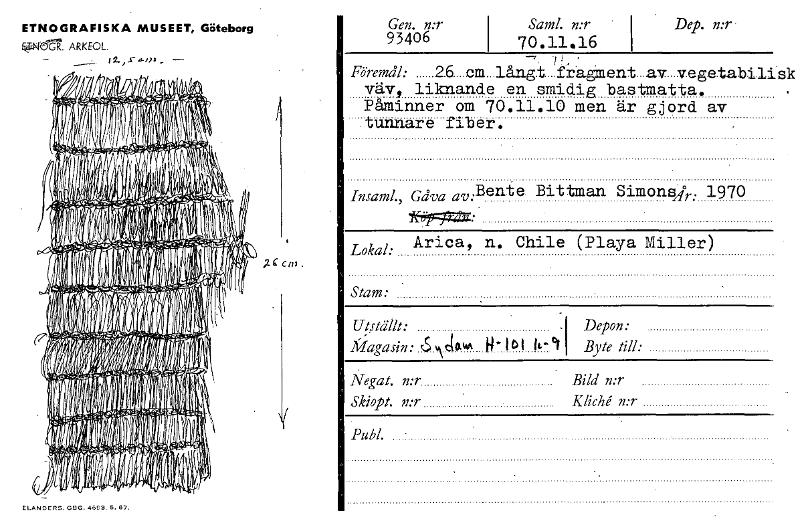 ETNOGRAFISKA MUSEET, Göteborg
ETNOGR. ARKEOL.
12,5 cm.
26 cm.
ELANDERS, GBG. 4603. 5. 67.
Gen. n:r
93406
Saml. n:r
70.11.16
Dep. n:r
Föremål: 26 cm långt fragment av vegetabilisk
väv, liknande en smidig bastmatta.
Påminner om 70.11.10 men är gjord av
tunnare fiber.
Insaml., Gåva av: Bente Bittman Simons År: 1970
Köp från:
Lokal: Arica, n. Chile (Playa Miller)
Stam:
Utställt:
Depon:
Magasin: Sydam H-101 h-9
Byte till:
Negat. n:r
Bild n:r
Skiopt. n:r
Kliché n:r
Publ.